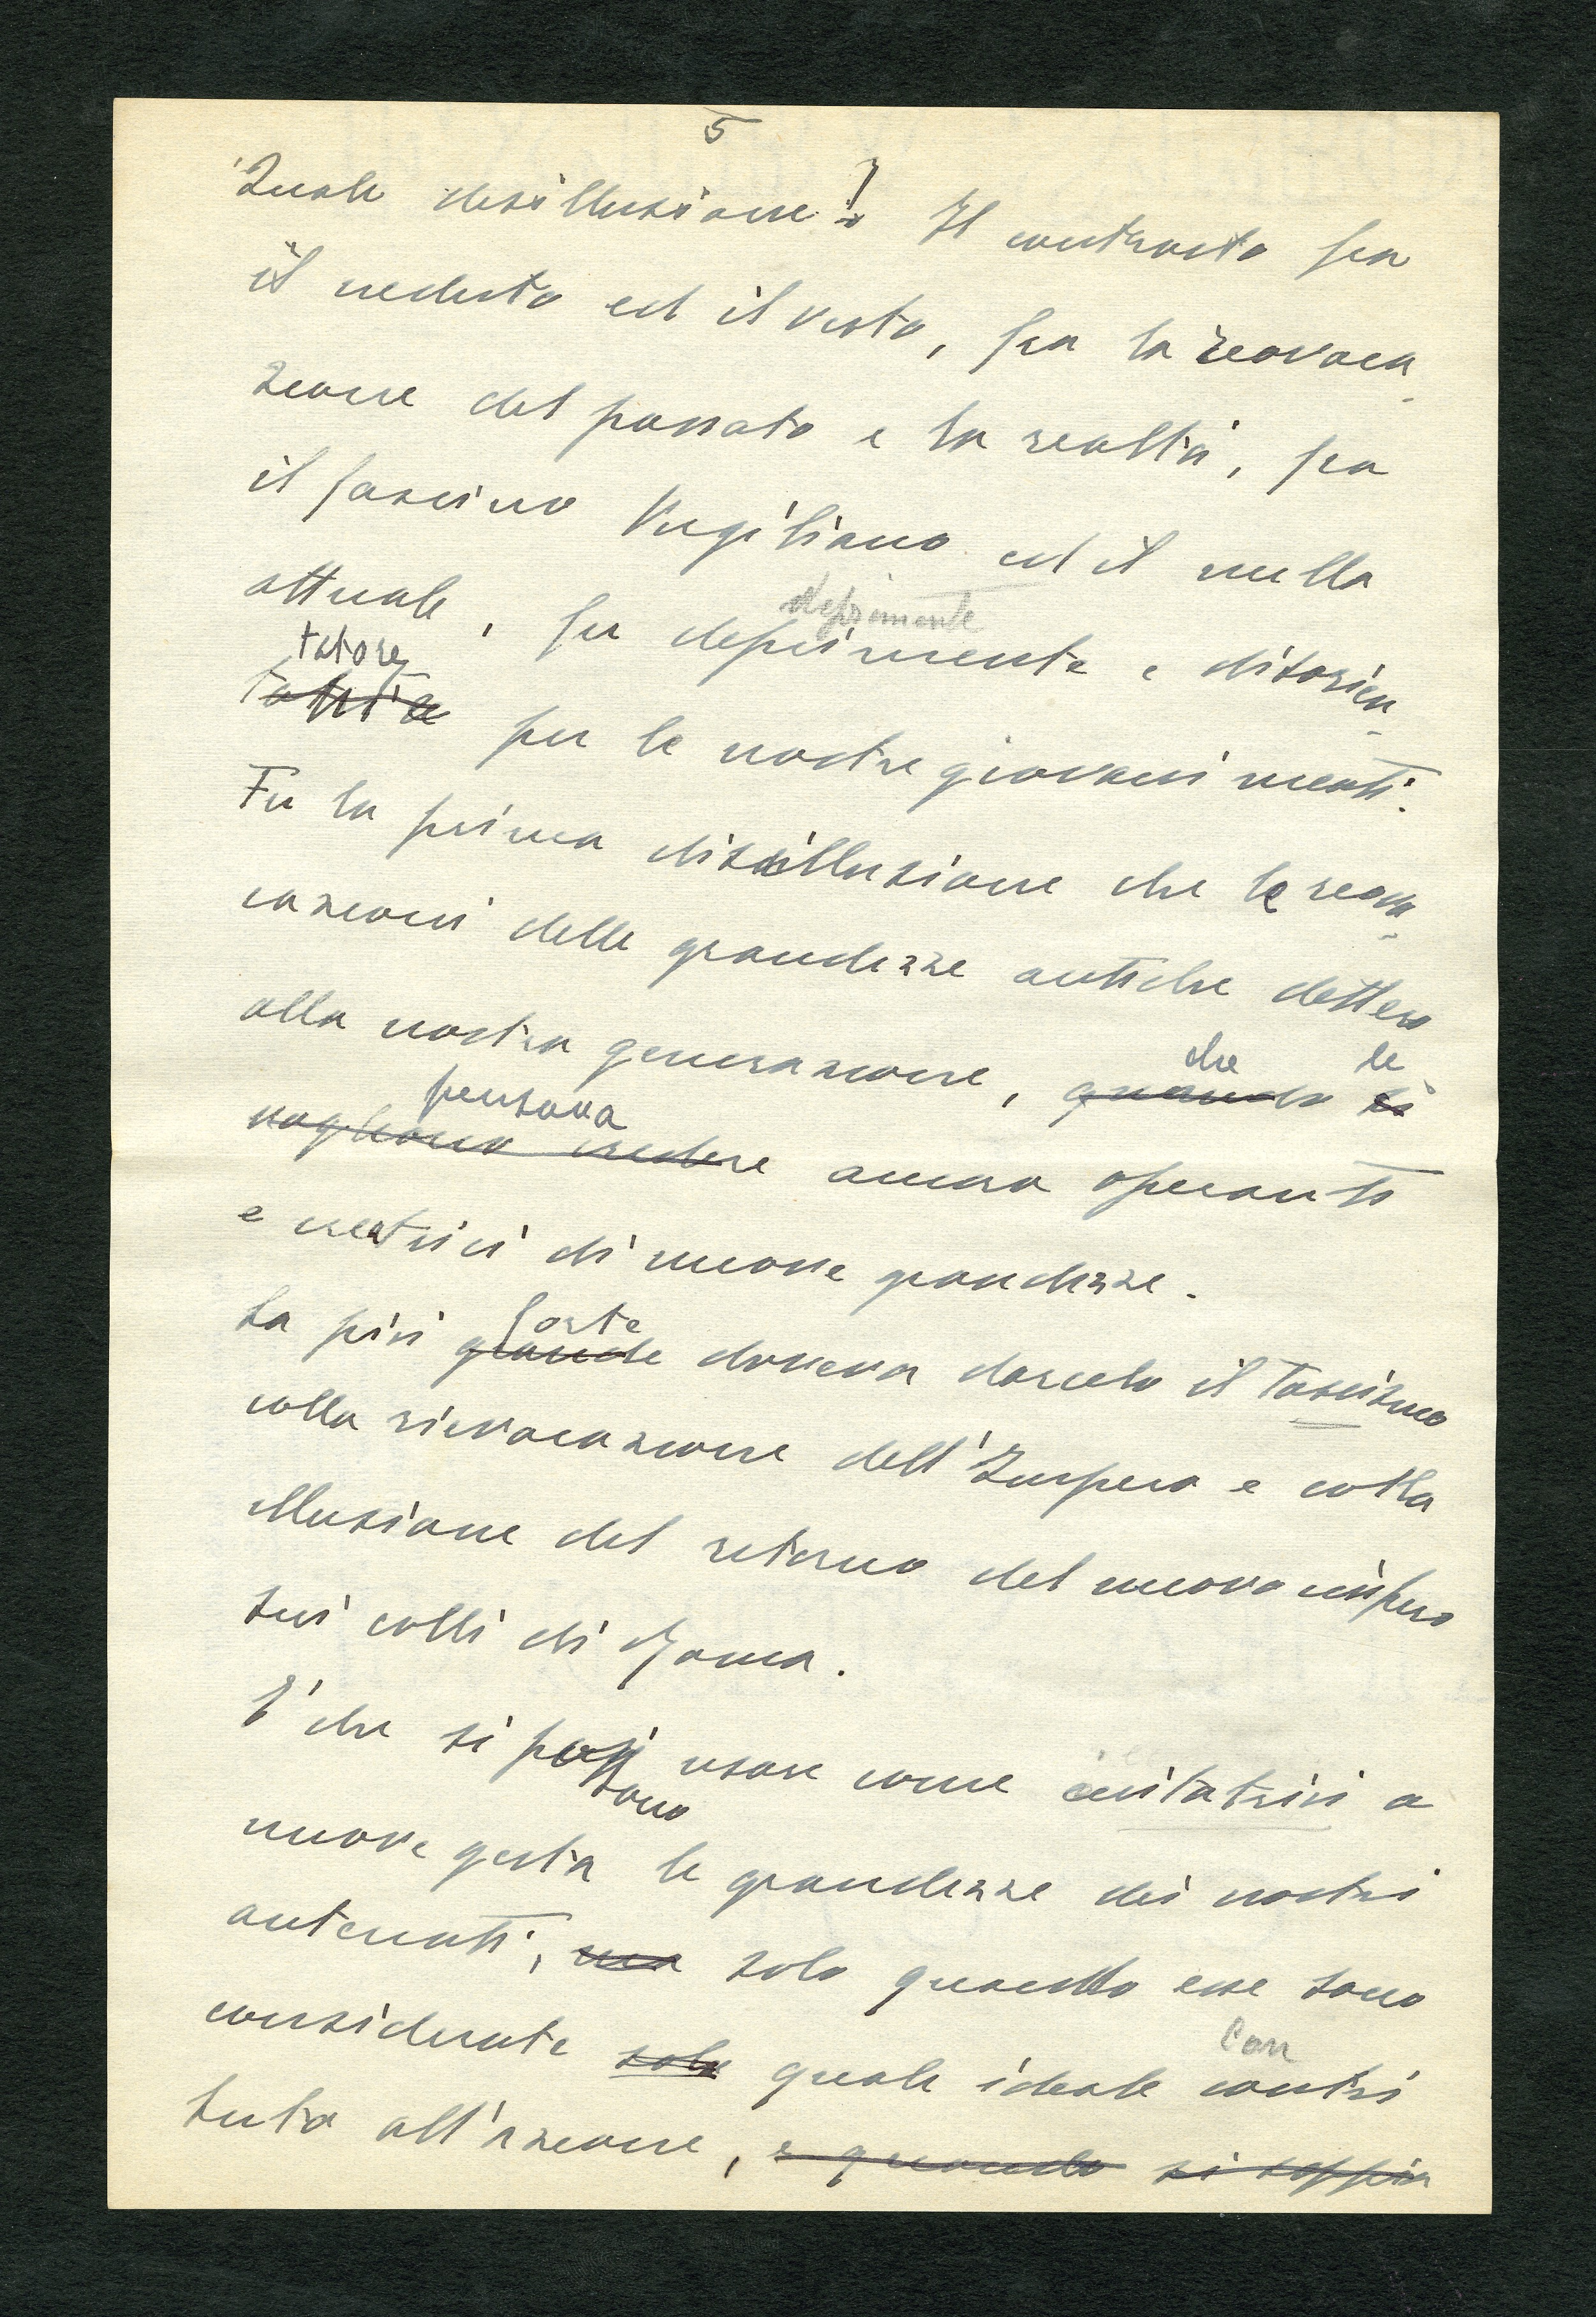 5
Quale desillusione! Il contrasto fra
il veduto ed il visto, fra la reovoca-
zione del passato e la realtà, fra
il fascino Virgiliano ed il nulla
deprimente
attuale, fu deprimente e disorien-
tatore
per le nostre giovani menti.
Fu la prima disillusione che le reovo-
cazioni delle grandezze antiche dettero
che le
alla nostra generazione, quando si
pensava
vogliono credere ancora operanti
e creatrici di nuove grandezze.
forte
La più grande doveva darcela il Fascismo
colla rievocazione dell'Impero e colla
illusione del ritorno del nuovo impero
sui colli di Roma.
E' che si possono usare come incitatrici a
nuove gesta le grandezze dei nostri
antenati, ma solo quando esse sono
con
considerate solo quale ideale contri
buto all'azione, e quando si sappia